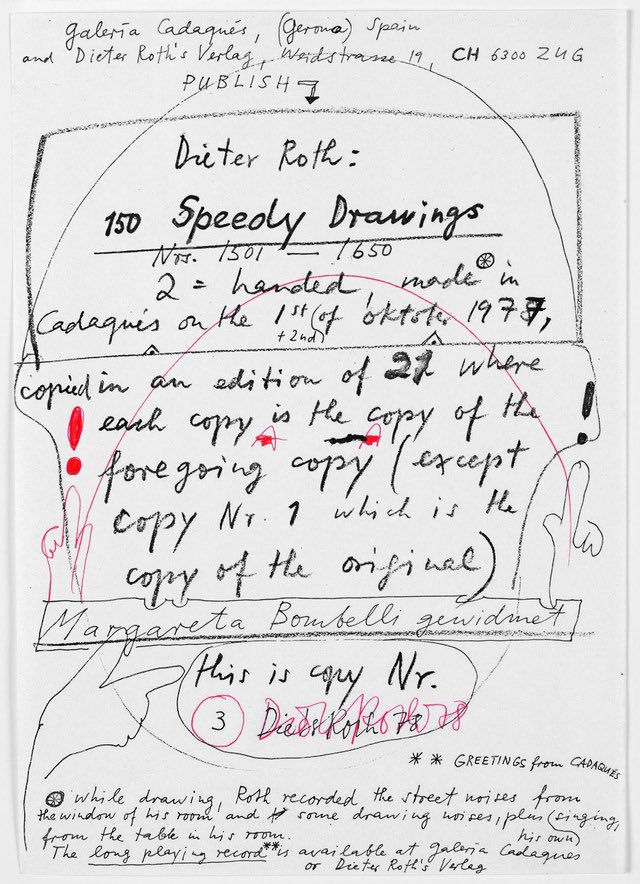 galeria Cadaqués, (Gerona) Spain
and Dieter Roth's Verlag, Weidstrasse 19, CH 6300 ZUG
PUBLISH
Dieter Roth:
150 Speedy Drawings
Nrs. 1501 — 1650
2 = handed, made in
Cadaqués on the 1st (of oktober 1977,
+ 2nd)
copied in an edition of 21 where
each copy is the copy of the
foregoing copy (except
copy Nr. 1 which is the
copy of the original)
Margareta Bombelli gewidmet
this is copy Nr.
3 Dieter Roth 78
** GREETINGS from CADAQUÉS
while drawing, Roth recorded the street noises from
the window of his room and some drawing noises, plus (singing,
from the table in his room. his own)
The long playing record** is available at galeria Cadaques
or Dieter Roth's Verlag